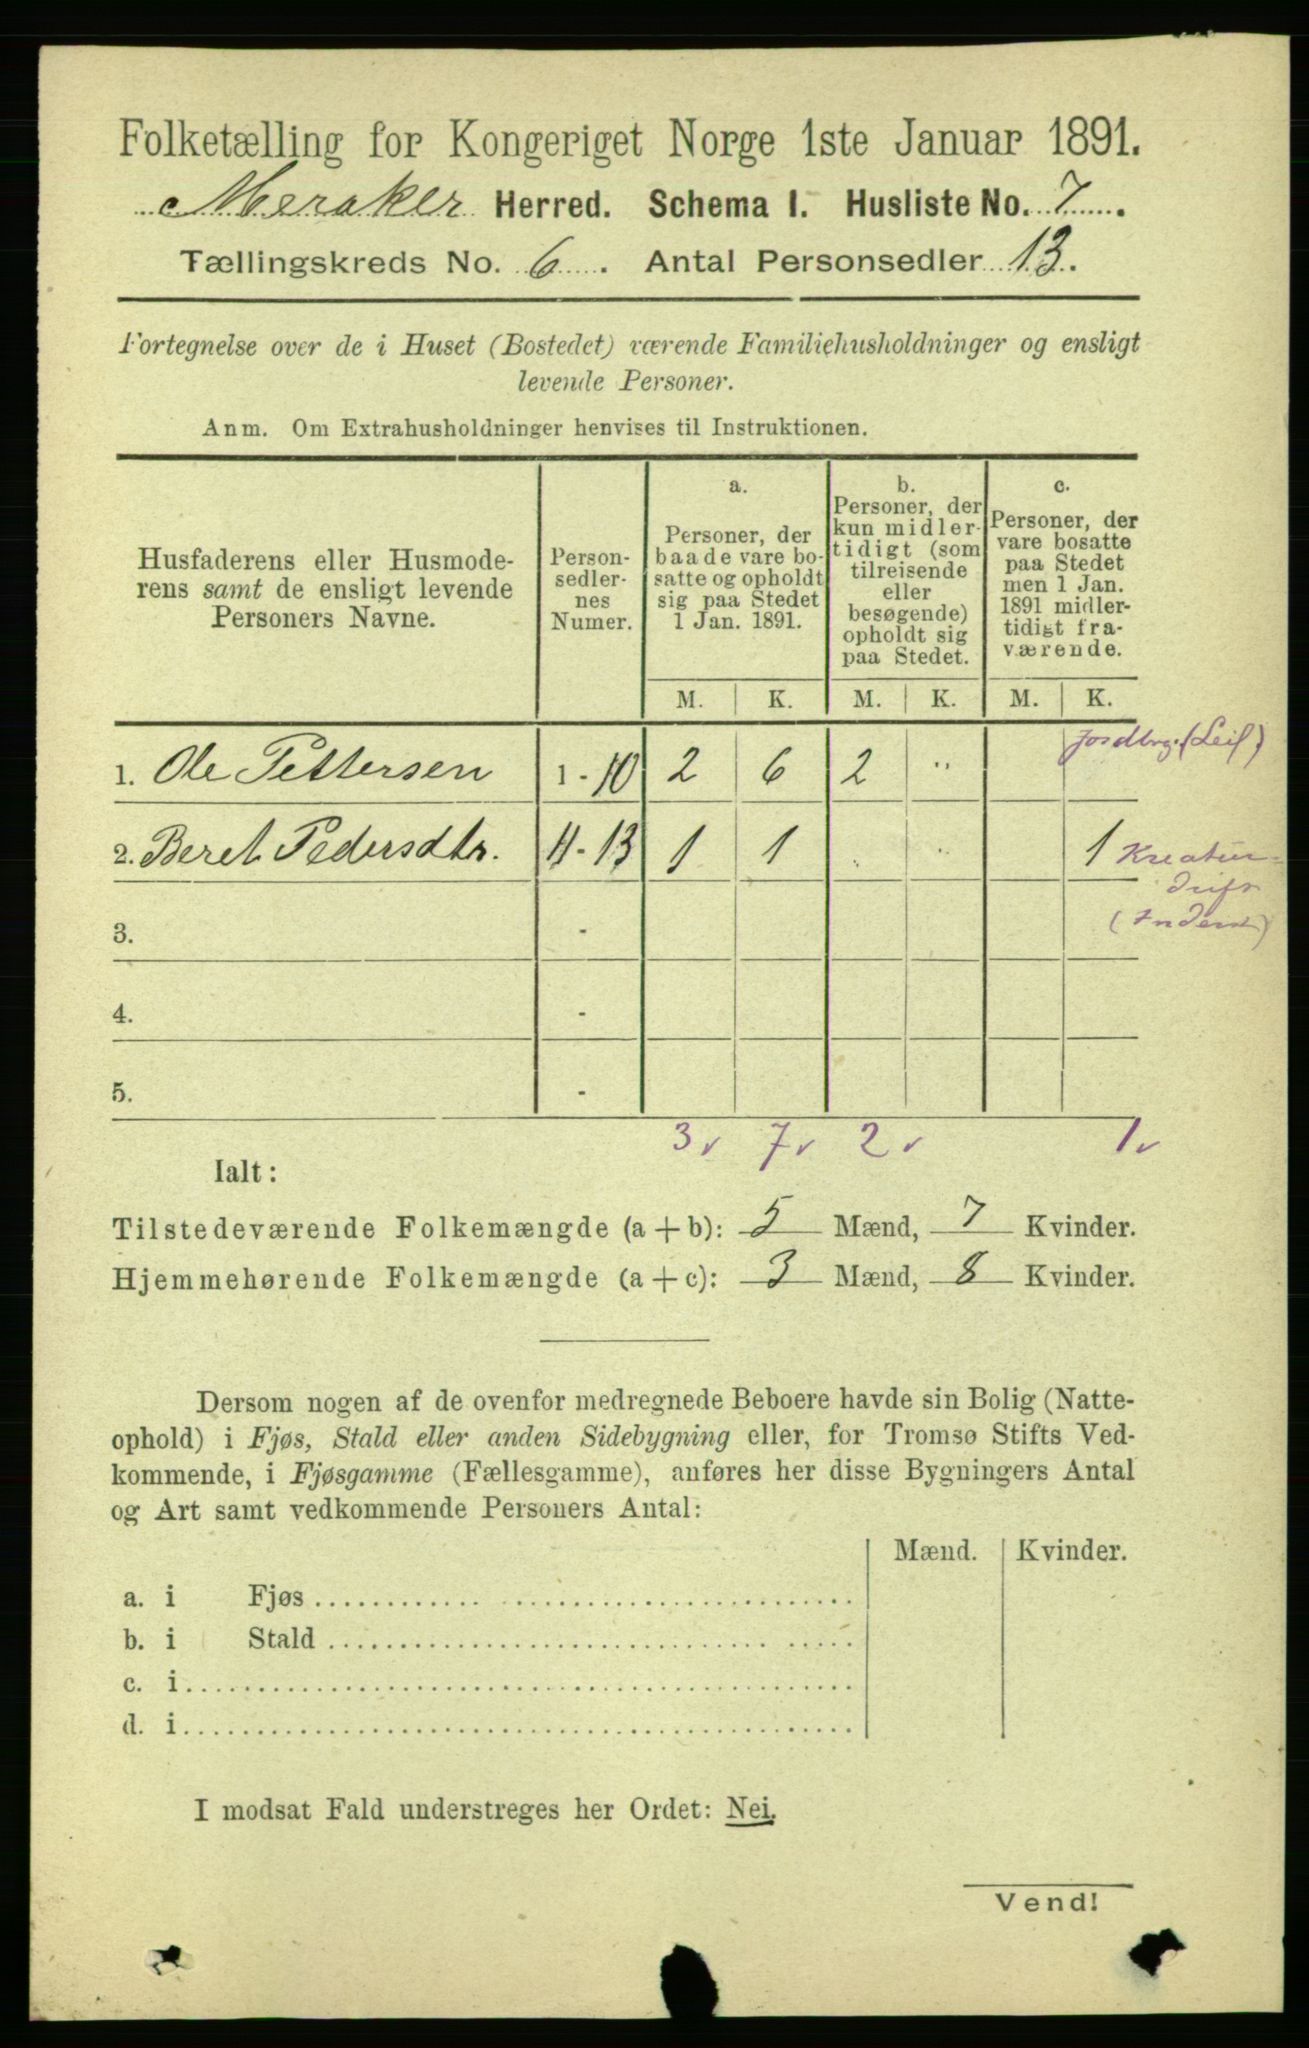 Folketælling for Kongeriget Norge 1ste Januar 1891.
Meraker Herred. Schema I. Husliste No. 7.
Tællingskreds No. 6. Antal Personsedler 13.
Fortegnelse over de i Huset (Bostedet) værende Familiehusholdninger og ensligt
levende Personer.
Anm. Om Extrahusholdninger henvises til Instruktionen.
Husfaderens eller Husmode-
rens samt de ensligt levende
Personers Navne.
Person-
sedler-
nes
Numer.
a.
Personer, der
baade vare bo-
satte og opholdt
sig paa Stedet
1 Jan. 1891.
b.
Personer, der
kun midler-
tidigt (som
tilreisende
eller
besøgende)
opholdt sig
paa Stedet.
c.
Personer, der
vare bosatte
paa Stedet
men 1 Jan.
1891 midler-
tidigt fra-
værende.
M. K. M. K. M. K.
Jordbrg. (Leil)
1. Ole Pettersen 1 - 10 2 6 2 "
2. Beret Pedersdtr. 11 - 13 1 1 . " 1 Kreatur-
drift
(Inderst)
3. -
4. -
5. -
3 v 7 v 2 v 1 v
Ialt:
Tilstedeværende Folkemængde (a + b): 5 Mænd, 7 Kvinder.
Hjemmehørende Folkemængde (a + c): 3 Mænd, 8 Kvinder.
Dersom nogen af de ovenfor medregnede Beboere havde sin Bolig (Natte-
ophold) i Fjøs, Stald eller anden Sidebygning eller, for Tromsø Stifts Ved-
kommende, i Fjøsgamme (Fællesgamme), anføres her disse Bygningers Antal
og Art samt vedkommende Personers Antal:
Mænd. Kvinder.
a. i Fjøs
b. i Stald
c. i
d. i
I modsat Fald understreges her Ordet: Nei.
Vend!